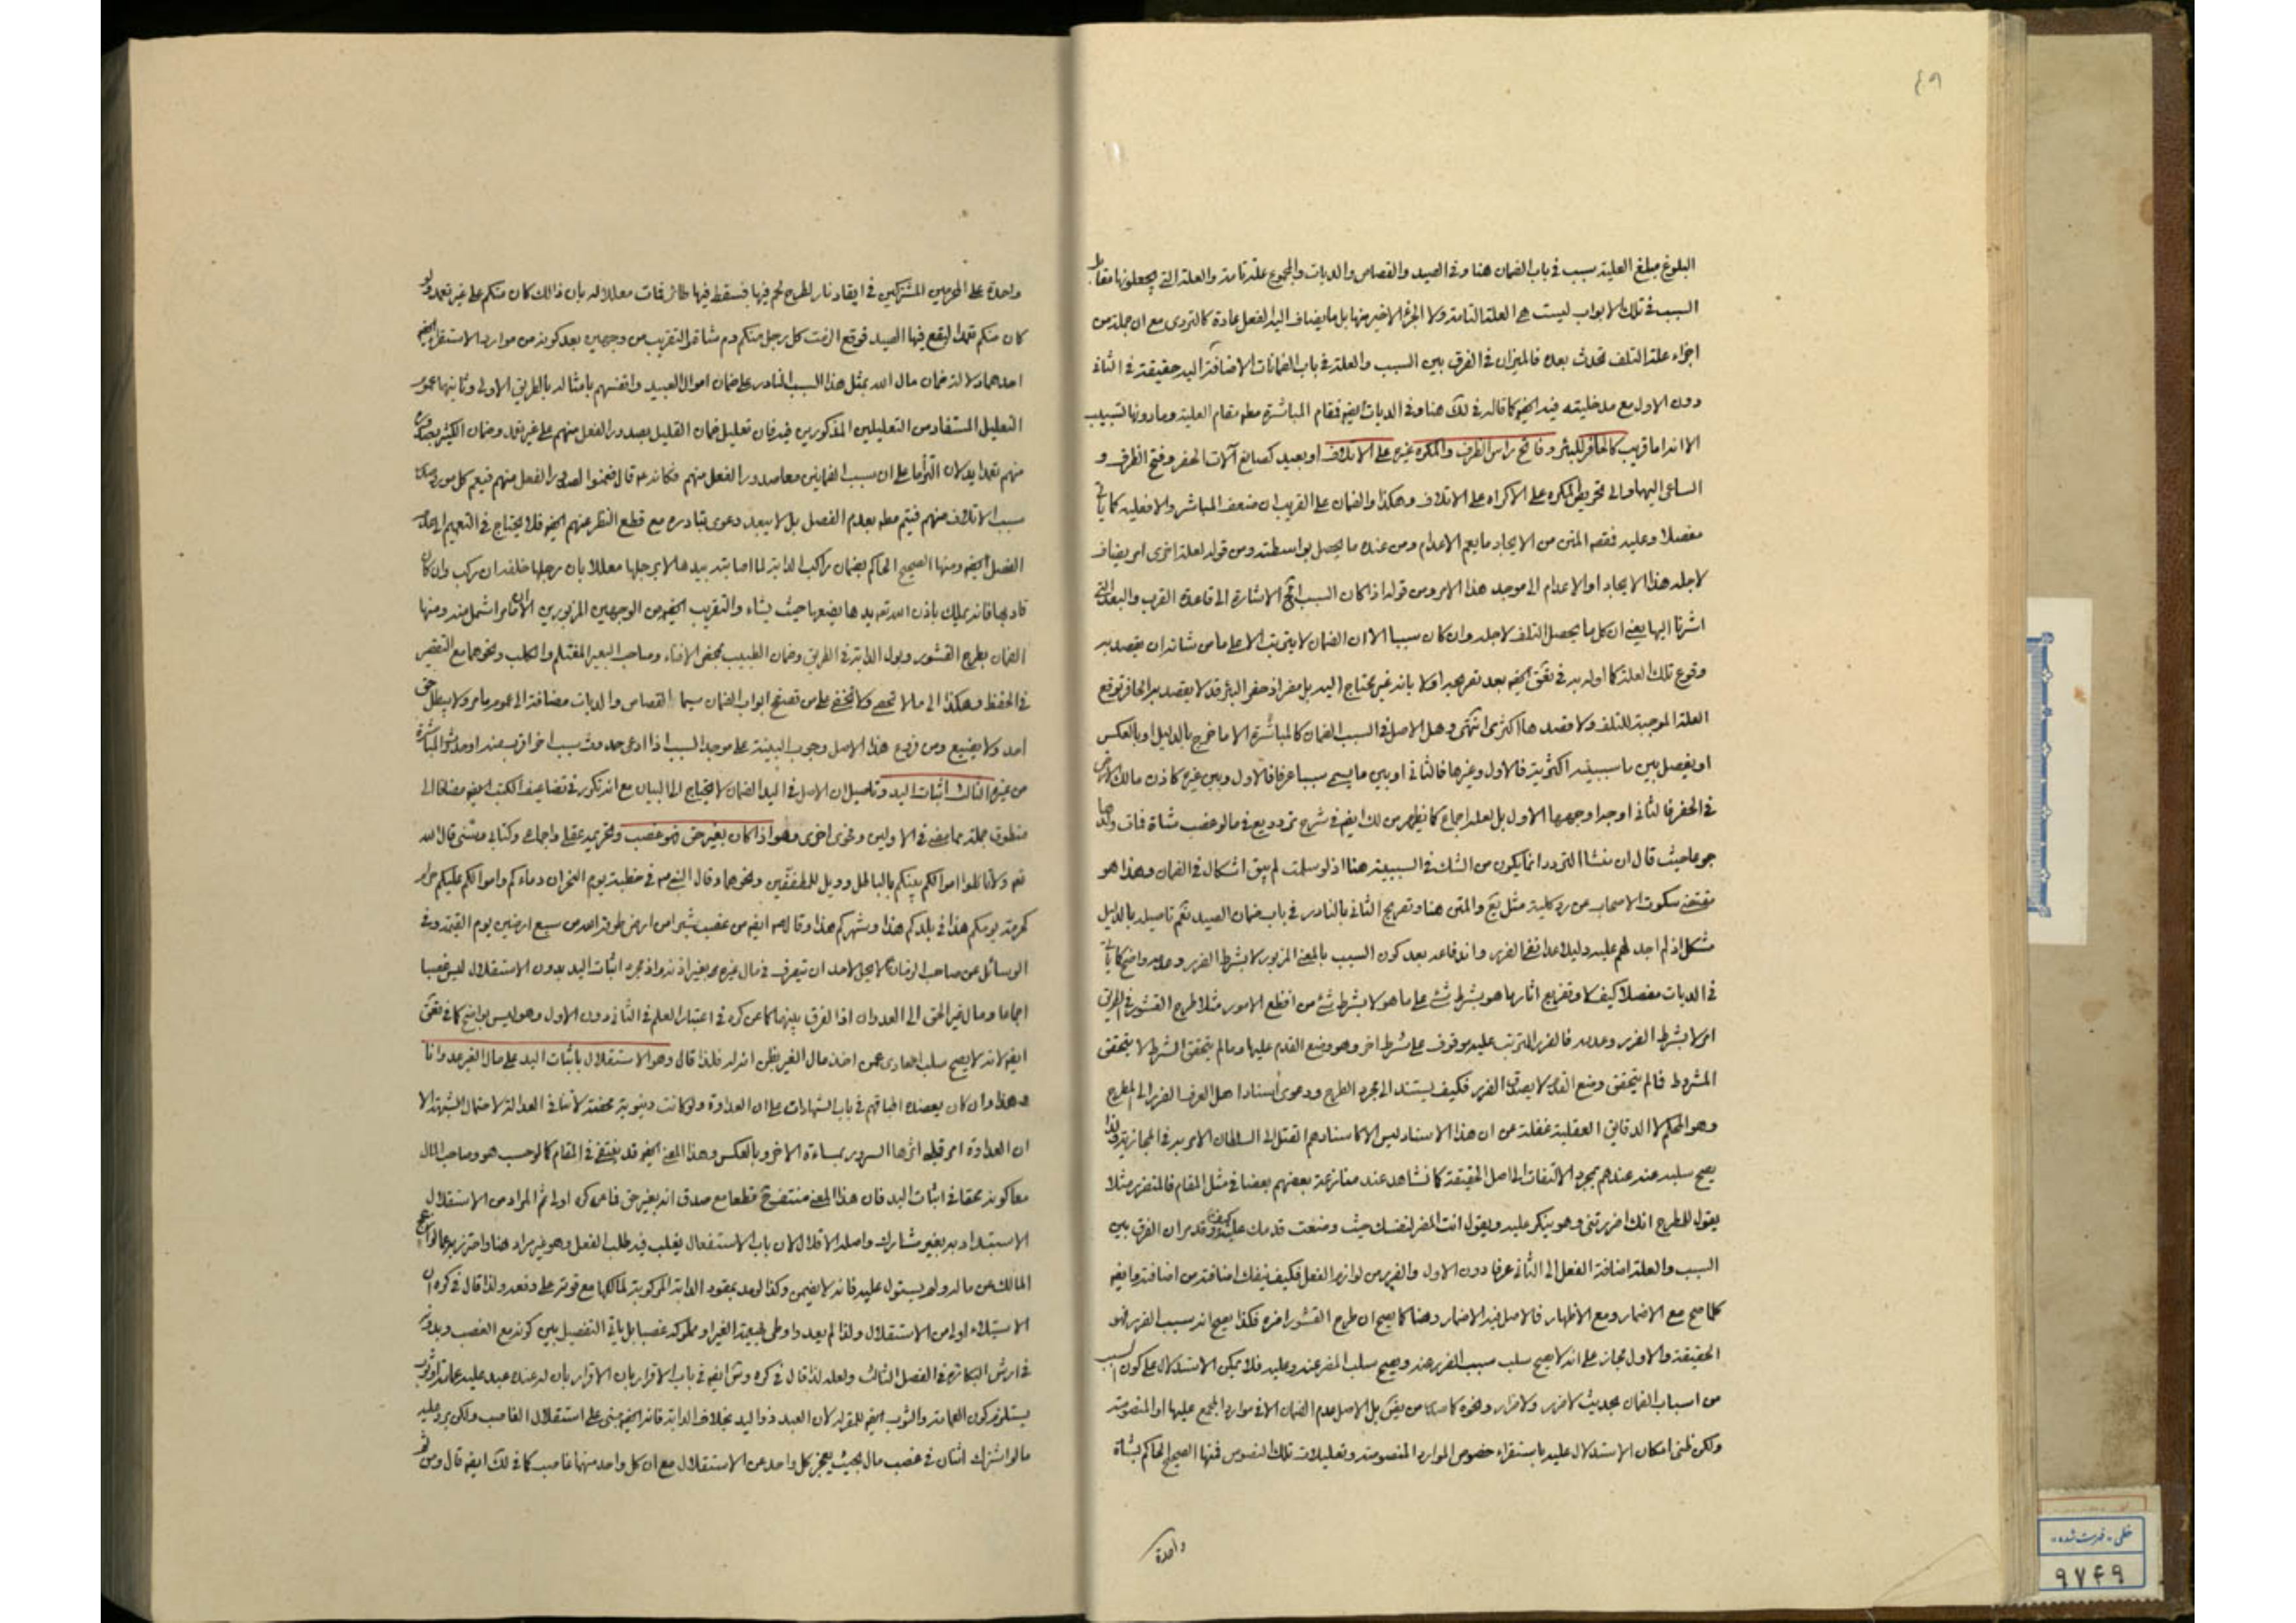 ٤٩
البلوغ مبلغ العلية سبب في باب الضمان هنا وفي الصيد والقصاص والديات والمجموع علة تامة والعلة التي يجعلونها مقابل
السبب في تلك الابواب ليست هي العلة التامة ولا الجزء الاخير منها بل ما يضاف اليه الفعل عادة كالتردى مع ان جملة من
اجزاء علة التلف تحدث بعده فالميزان في الفرق بين السبب والعلة في باب الضمانات الاضافة اليه حقيقة في الثاني
دون الاول مع مدخليته فيه ايضا كما قاله في لك هنا وفي الديات ايضا فمقام المباشرة مطه مقام العلية وما دونها تسبيب
الا انه اما قريب كالحافر للبئر وفاتح راس الظرف والمكره غيره على الاتلاف او بعيد كصانع آلات الحفر وفتح الظرف و
الساعى اليها والى تحريض المكره على الاكراه على الاتلاف وهكذا والضمان على القريب ان ضعف المباشر والا فعليه كما ياتى
مفصلا وعليه فقصد المتن من الايجاد ما يعم الاعدام ومن عنده ما يحصل بواسطته ومن قوله لعلة اخرى امر يضاف
لاجله هذا الايجاد او الاعدام الى موجد هذا الامر ومن قوله اذا كان السبب الخ الاشارة الى قاعدة القرب والبعد التي
اشرنا اليها يعنى ان كل ما يحصل التلف لاجله وان كان سببا الا ان الضمان لا يترتب الا على ما من شانه ان يقصد به
وقوع تلك العلة كما اوله به في تعق ايضا بعد تصريحه اولا بانه غير محتاج اليه بل مضر اذ حفر البئر قد لا يقصد به الحافر توقع
العلة الموجبة للتلف ولا قصدها اكثرى انتهى وهل الاصل في السبب الضمان كالمباشرة الا ما خرج بالدليل او بالعكس
او يفصل بين ما سببيته اكثرية فالاول وغيرها فالثانى او بين ما يسمى سببا عرفا فالاول وبين غيره كاذن مالك الارض
في الحفر فالثانى اوجه اوجهها الاول بل لعله اجماع كما يظهر من لك ايضا في شرح تردد يع في ما لو غصب شاة فمات ولدها
جوعا حيث قال ان منشا التردد انما يكون من الشك في السببية هنا اذ لو سلمت لم يبق اشكال في الضمان وهذا هو
مقتضى سكوت الاصحاب عن رد كلية مثل يع والمتن هنا وتصريح الثانى بالنادر في باب ضمان الصيد نعم تاصيله بالدليل
مشكل اذ لم اجد لهم عليه دليلا عدا نفى الضرر وانه قاعد بعد كون السبب بالمعنى المزبور لا بشرط الضرر وعدمه واضح كما ياتى
في الديات مفصلا كيف لا وتفريع اثار ما هو بشرط شئ على ما هو لا بشرط شئ من افظع الامور مثلا طرح القشور في الطريق
امر لا بشرط الضرر وعدمه فالضرر المترتب عليه موقوف على شرط اخر وهو وضع القدم عليها وما لم يتحقق الشرط لا يتحقق
المشروط فما لم يتحقق وضع القدم لا يصدق الضرر فكيف يستند الى مجرد الطرح ودعوى اسناد اهل العرف الضرر الى المطرح
وهو الحكم لا الدقائق العقلية غفلة عن ان هذا الاسناد ليس الا كاسنادهم القتل الى السلطان الامر به في المجازية ولذا
يصح سلبه عنه عندهم بمجرد الالتفات الى اصل الحقيقة كما نشاهد عند منازعة بعضهم بعضا في مثل المقام فالمتضرر مثلا
يقول للطارح انك اضررتنى وهو ينكر عليه ويقول انت المضر لنفسك حيث وضعت قدمك عليه كيف وقد مر ان الفرق بين
السبب والعلة اضافة الفعل الى الثانى عرفا دون الاول والضرر من لوازم الفعل فكيف ينفك اضافته من اضافته وايضا
كلما صح مع الاضمار ومع الاظهار فالاصل فيه الاضمار وهنا كما يصح ان طرح القشور اضره فكذا يصح انه سبب الضرر فهو
الحقيقة والاول مجاز على انه لا يصح سلب سبب الضرر عنه ويصح سلب المضر عنه وعليه فلا يمكن الاستدلال على كون السبب
من اسباب الضمان بحديث لا ضرر ولا ضرار ونحوه كما صدر من بعض بل الاصل عدم الضمان الا في موارد المجمع عليها او المنصوصة
ولكن ظنى امكان الاستدلال عليه باستقراء خصوص الموارد المنصوصة وتعليلات تلك النصوص فمنها الصحيح الحاكم بشاة
واحدة
واحدة على المحرمين المشتركين في ايقاد نار لطرح لحم فيها فسقط فيها طائر فمات معللا له بان ذالك كان منكم على غير تعمد ولو
كان منكم تعمدا ليقع فيها الصيد فوقع الزمت كل رجل منكم دم شاة والتقريب من وجهين بعد كونه من موارد الاستقراء ايضا
احدهما دلالة ضمان مال الله بمثل هذا السبب النادر على ضمان اموال العبيد وانفسهم بامثاله بالطريق الاولى وثانيهما عموم
التعليل المستفاد من التعليلين المذكورين فيه فان تعليل ضمان القليل بصدور الفعل منهم على غير تعمد وضمان الكثير بصدوره
منهم تعمدا يدلان التزاما على ان سبب الضمانين معا صدور الفعل منهم فكانه عه قال ضمنوا لصدور الفعل منهم فيعم كل مورد صدر
سبب الاتلاف منهم فيتم مطه بعدم الفصل بل لا يبعد دعوى تبادره مع قطع النظر عنهم ايضا فلا يحتاج في التعميم الى عدم
الفصل ايضا ومنها الصحيح الحاكم بضمان راكب الدابة لما اصابته بيدها لا برجلها معللا بان رجلها خلفه ان ركب وان كان
قادبها فانه يملك باذن الله تعه يدها يضعها حيث يشاء والتقريب ايضا من الوجهين المزبورين الا ان ما مر اشمل منه ومنها
الضمان بطرح القشور وبول الدابة في الطريق وضمان الطبيب بمحض الافتاء وصاحب البعير المغتلم والكلب ونحوهما مع التقصير
في الحفظ وهكذا الى ما لا تحصى ولا تخفى على من تصفح ابواب الضمان سيما القصاص والديات مضافة الى عموم ما مر ولا يبطل حق
احد ولا يضيع ومن فروع هذا الاصل وجوب البينة على موجد السبب اذا ادعى حدوث سبب اخر اقرب منه او حدوث المباشرة
من غيره الثالث اثبات اليد وتاصيل ان الاصل في اليد الضمان لا يحتاج الى البيان مع انه تكرر في تضاعيف الكتب ايضا مضافا الى
منطوق جملة مما مضى في الاولين وفحوى اخرى وهو اذا كان بغير حق فهو غصب وتحريمه عقلى واجماعى وكتابى وسنتى قال الله
تعه ولا تاكلوا اموالكم بينكم بالباطل وويل للمطففين ونحوهما وقال النبى ص في خطبته يوم النحر ان دماءكم واموالكم عليكم حرام
كحرمة يومكم هذا في بلدكم هذا وشهركم هذا وقال ص ايضا من غصب شبرا من ارض طوقه الله من سبع ارضين يوم القيمة وفى
الوسائل عن صاحب الزمان لا يحل لاحد ان يتصرف في مال غيره بغير اذنه واذ مجرد اثبات اليد بدون الاستقلال ليس غصبا
اجماعا ومال غير الحق الى العدوان اذ الفرق بينهما كما عن كره في اعتبار العلم في الثانى دون الاول وهو ليس بواضح كما في تعق
ايضا لانه لا يصح سلب العادى عمن اخذ مال الغير بظن انه له فلذا قال وهو الاستقلال باثبات اليد على مال الغير عدوانا
وهذا وان كان يعضده اطباقهم في باب الشهادات على ان العداوة ولو كانت دنيوية محضة لا تنافى العدالة لاحتمال الشبهة الا
ان العداوة امر قلبى اثرها السرور بمساءة الاخر وبالعكس وهذا المعنى ايضا قد ينتفى في المقام كما لو حسب هو وصاحب المال
معا كونه محقا في اثبات اليد فان هذا المعنى منتف ح قطعا مع صدق انه بغير حق فما عن كره اولى ثم المراد من الاستقلال
الاستبداد به بغير مشارك واصله الاقلال لان باب الاستفعال يغلب فيه طلب الفعل وهو غير مراد هنا واحترز به عما لو ازعج
المالك عن ماله ولم يستول عليه فانه لا يضمن وكذا لو مد بمقود الدابة المركوبة لمالكها مع قوته على دفعه ولذا قال في كره ان
الاستيلاء اولى من الاستقلال ولذا لم يعد واوطى بهيمة الغير او مملوكه غصبا بل ياتى التفصيل بين كونه مع الغصب وبدونه
في ارش البكارة في الفصل الثالث ولعله لذا قال في كره وش ايضا في باب الاقرار بان الاقرار بان له عنده عبد عليه عمامة او ثوب
يستلزم كون العمامة والثوب ايضا للمقر له لان العبد ذو اليد بخلاف الدابة فانه ايضا مبنى على استقلال الغاصب ولكن يرد عليه
ما لو اشترك اثنان في غصب مال بحيث يعجز كل واحد عن الاستقلال مع ان كل واحد منهما غاصب كما في لك ايضا قال ومن ثم
خطی - فهرست شده
٩٧٤٩